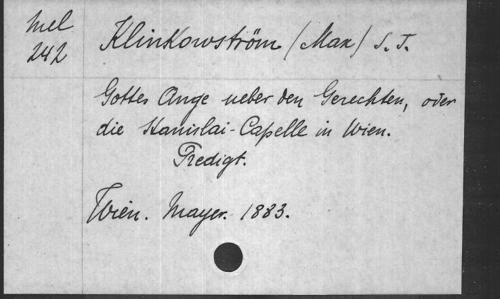 Mel
242
Klinkowström (Max) S. J.
Gottes Auge ueber den Gerechten, oder
die Stanislai-Capelle in Wien.
Predigt.
Wien. Mayer. 1883.